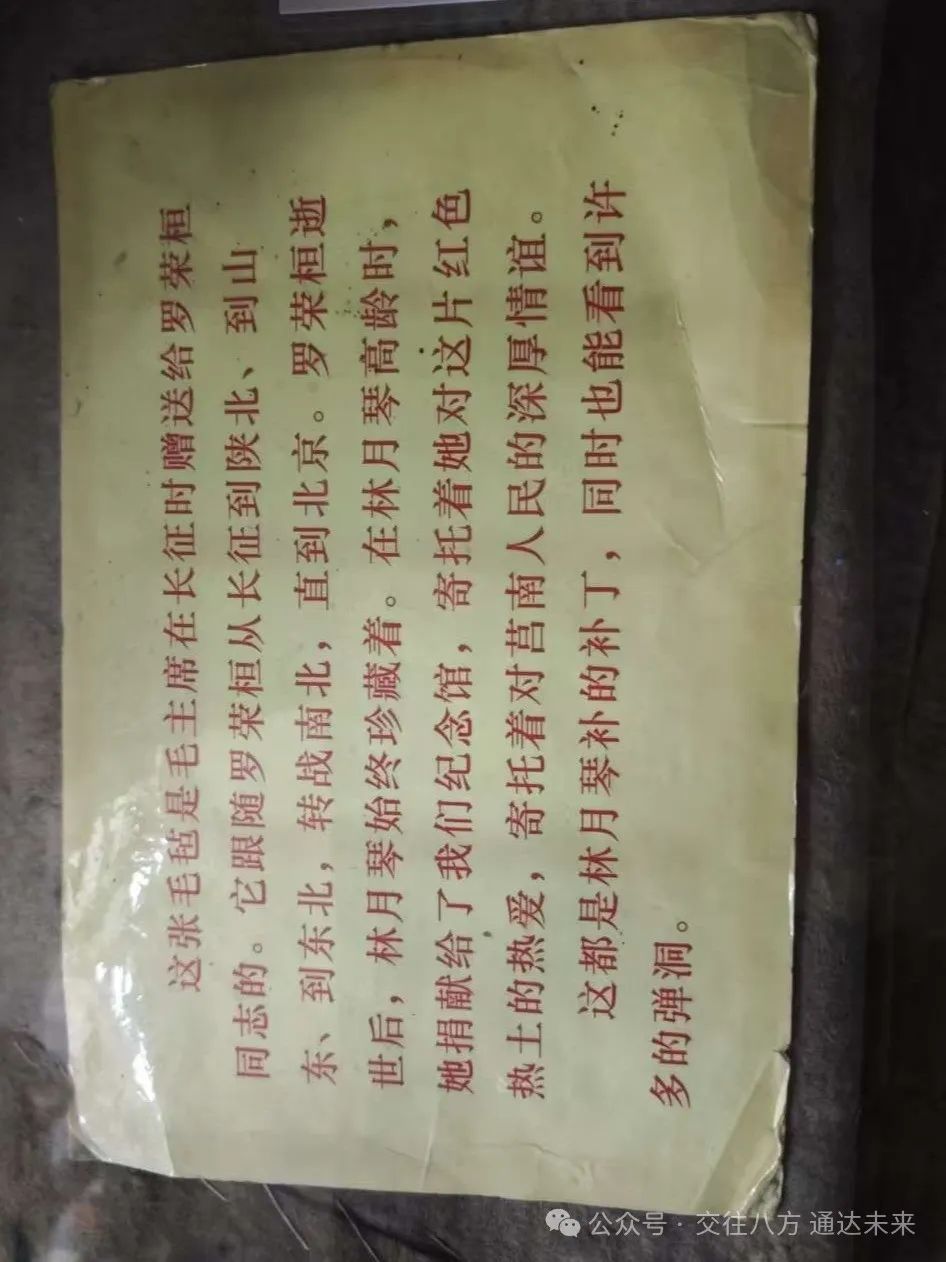 这张毛毡是毛主席在长征时赠送给罗荣桓
同志的。它跟随罗荣桓从长征到陕北、到山
东、到东北，转战南北，直到北京。罗荣桓逝
世后，林月琴始终珍藏着。在林月琴高龄时，
她捐献给了我们纪念馆，寄托着她对这片红色
热土的热爱，寄托着对莒南人民的深厚情谊。
这都是林月琴补的补丁，同时也能看到许
多的弹洞。
公众号·交往八方 通达未来